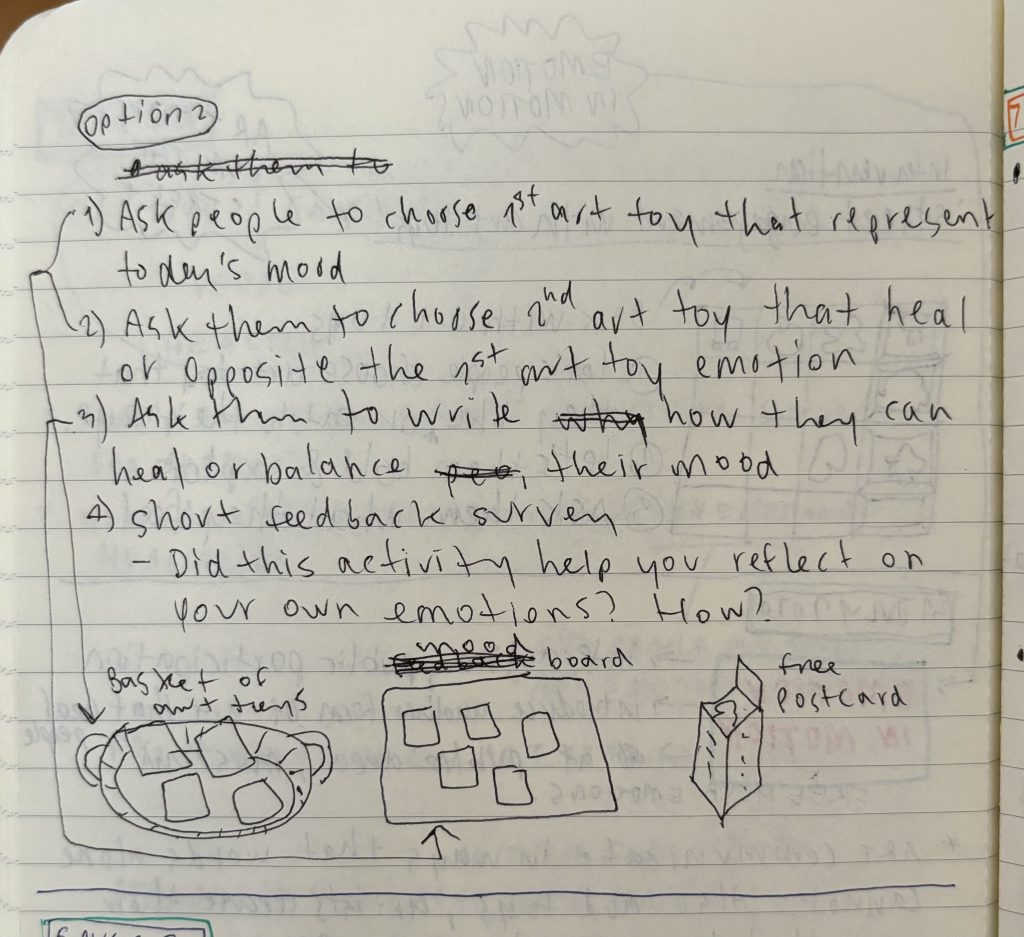 Option 2
ask them to
1) Ask people to choose 1st art toy that represent
today's mood
2) Ask them to choose 2nd art toy that heal
or opposite the 1st art toy emotion
3) Ask them to write why how they can
heal or balance their mood
4) short feedback survey
- Did this activity help you reflect on
your own emotions? How?
Basket of
art toys
mood
feedback board
free
postcard